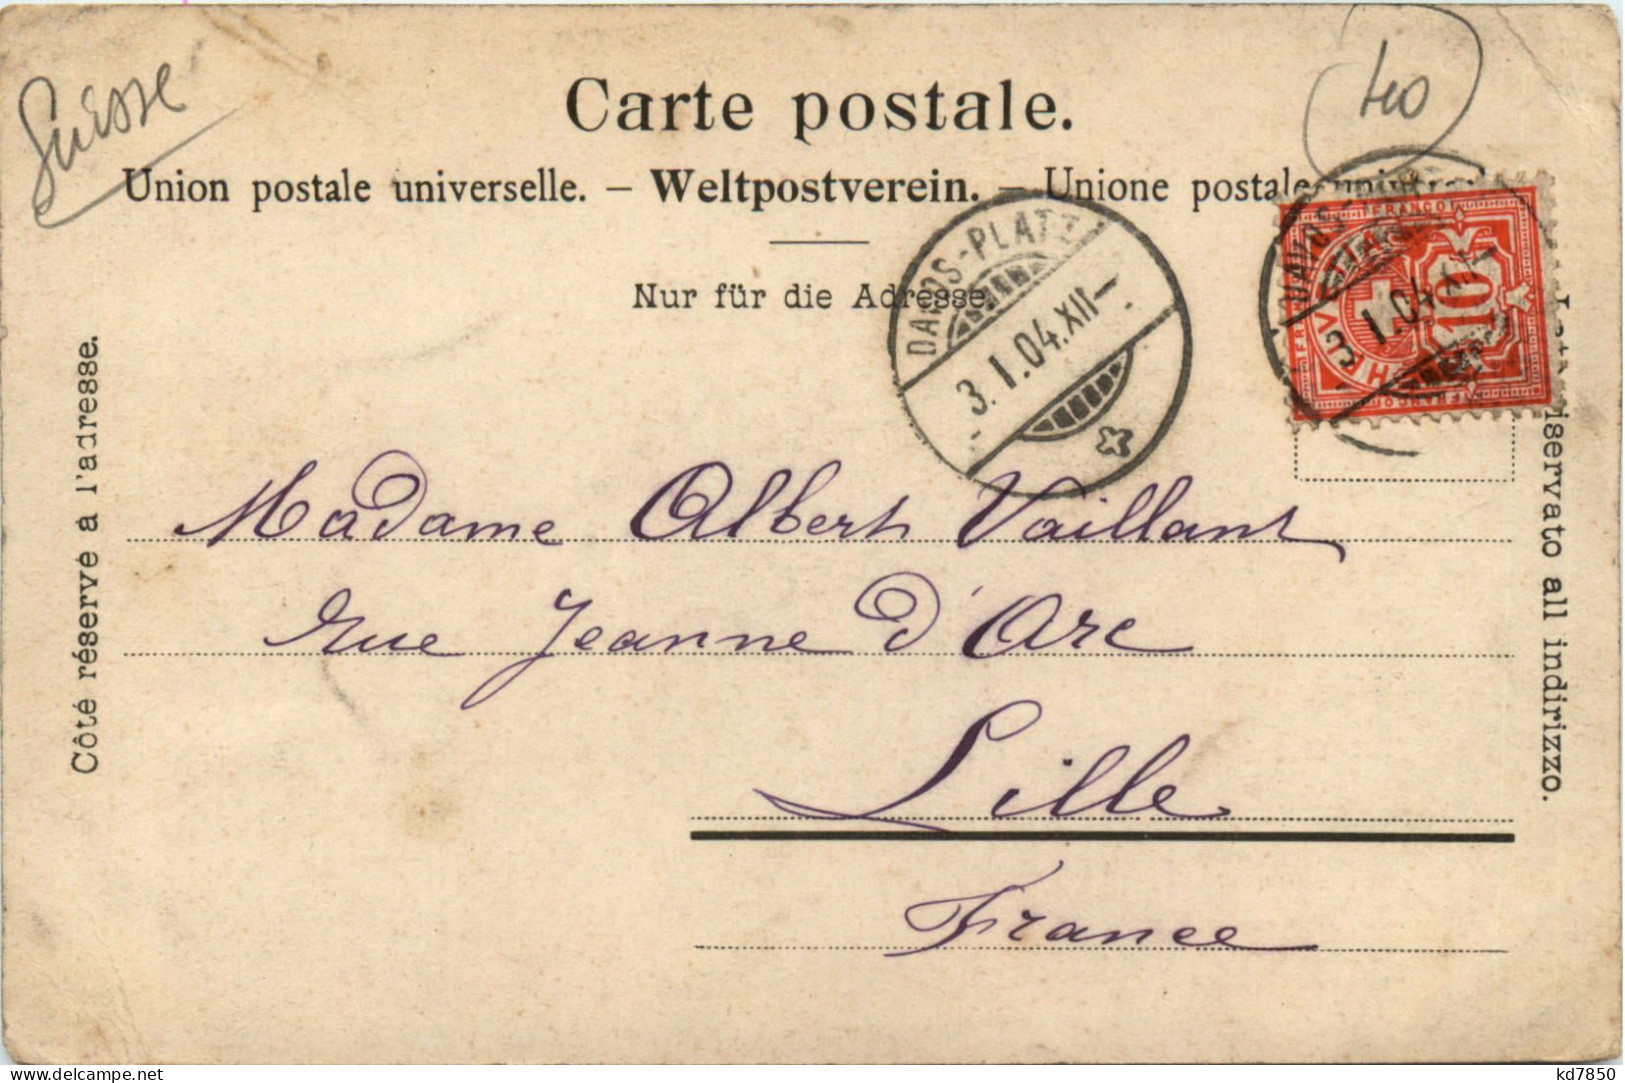 Suisse
40
Carte postale.
Union postale universelle. – Weltpostverein. – Unione postale
Nur für die Adresse.
Côté réservé à l'adresse.
riservato all indirizzo.
DAVOS-PLATZ
3.I.04.XII–
DAVOS-
3.I.04.XII–
FRANCO
HELVETIA
10
FRANCO
Madame Albert Vaillant
rue Jeanne d'Arc
Lille
France
kd7850